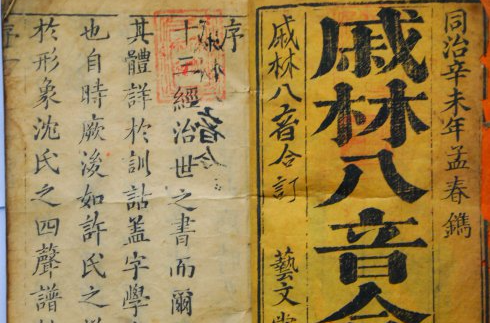 同治辛未年孟春鐫
戚林八音合
戚林八音合訂
藝文堂
序
十三經治世之書而爾
其體詳於訓詁蓋字學
也自時厥後如許氏之
於形象沈氏之四聲譜
序